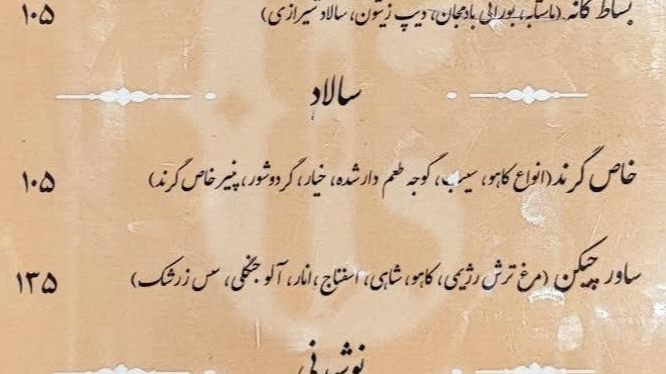 بساط کانه (ماستابه، بورانی بادمجان، دیپ زیتون، سالاد شیرازی) ۱۰۵
سالاد
خاص گرند (انواع کاهو، سیب، گوجه طعم دار شده، خیار، گردو شور، پنیر خاص گرند) ۱۰۵
ساور چیکن (مرغ ترش رژیمی، کاهو، شاهی، اسفناج، انار، آلو جنگلی، سس زرشک) ۱۳۵
نوشیدنی